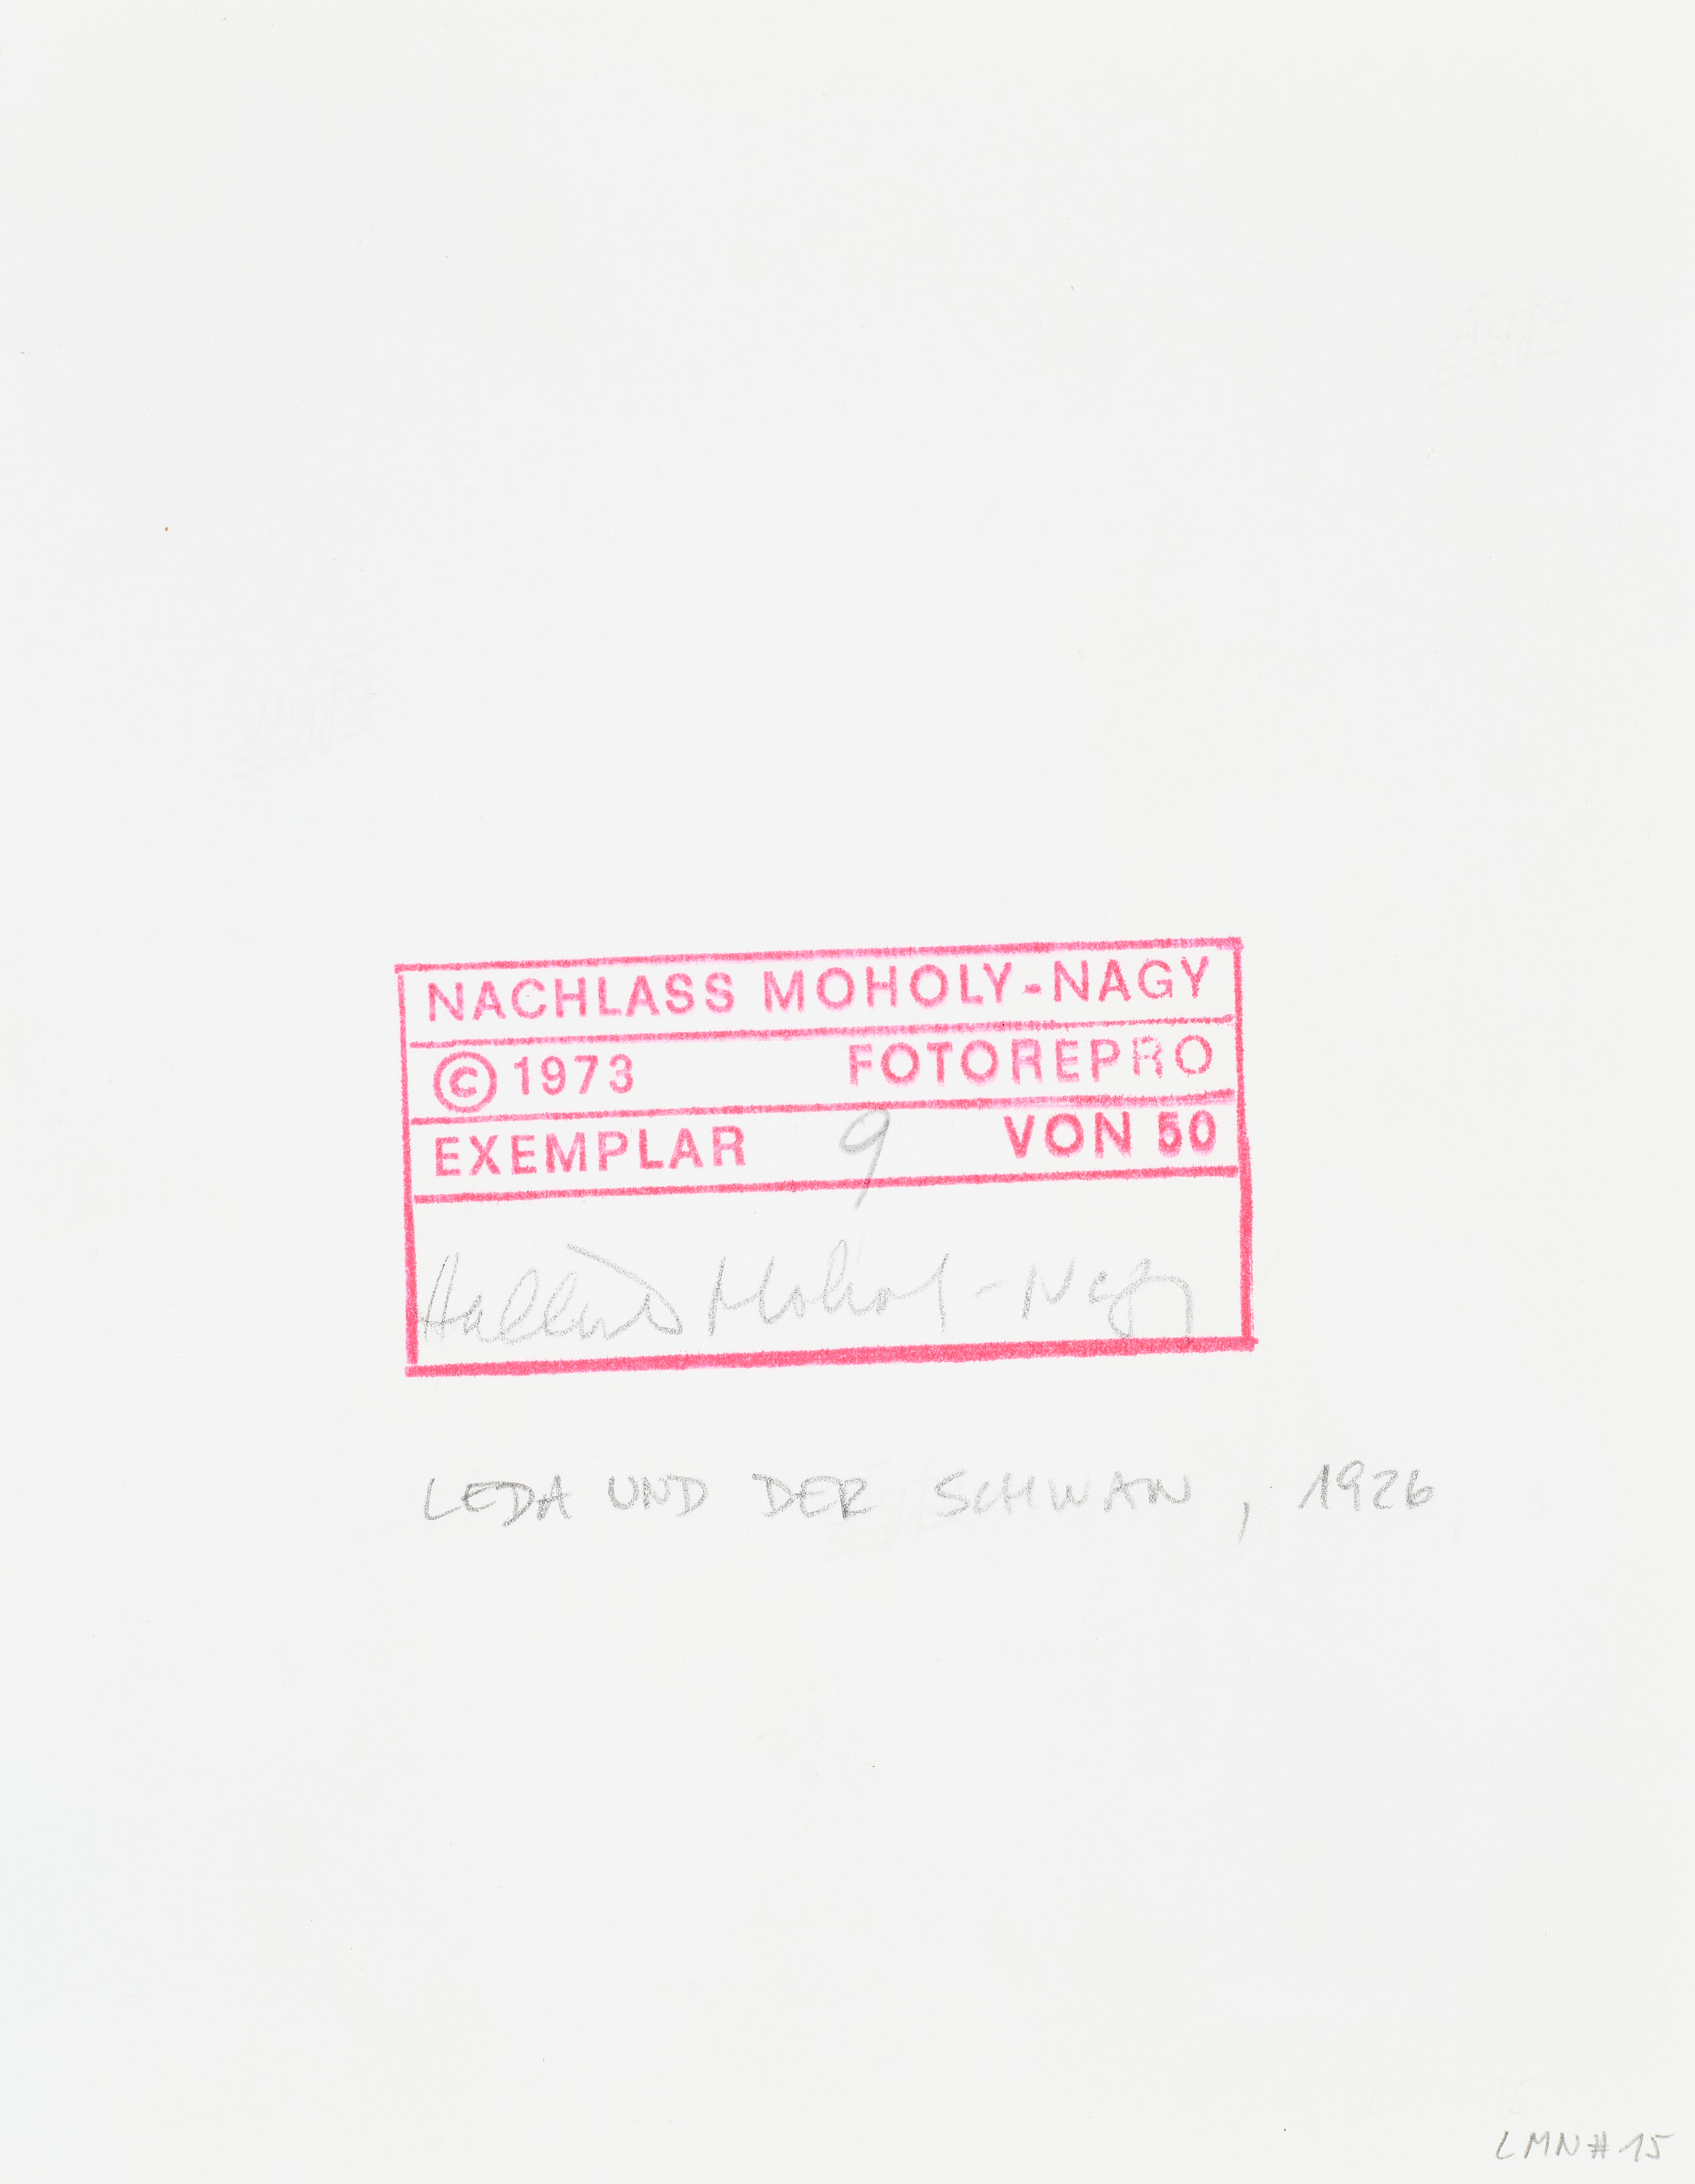 Agfa
Agfa
NACHLASS MOHOLY-NAGY
© 1973 FOTOREPRO
EXEMPLAR 9 VON 50
Hattula Moholy-Nagy
LEDA UND DER SCHWAN, 1926
LMN # 15